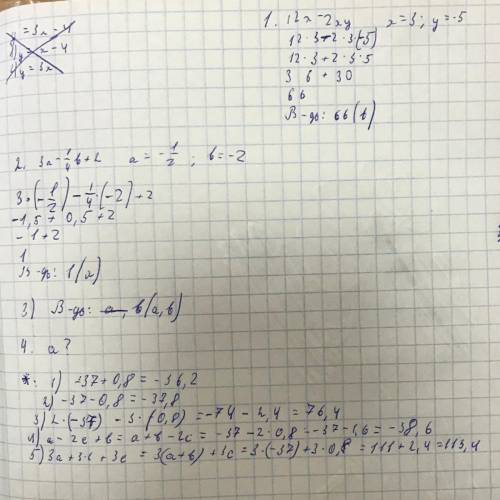 y = 3x - 4
1) y = x - 4
4) y = 3x
1. 12x - 2xy x = 3; y = -5
12·3 - 2·3·(-5)
12·3 + 2·3·5
36 + 30
66
В-дь: 66 (в)
2. 3a - 1/4 b + 2 a = -1/2; b = -2
3·(-1/2) - 1/4·(-2) + 2
-1,5 + 0,5 + 2
-1 + 2
1
В-дь: 1 (а)
3) В-дь: а, в (а, в)
4. а?
*. 1) -37 + 0,8 = -36,2
2) -37 - 0,8 = -37,8
3) 2·(-37) - 3·(0,8) = -74 - 2,4 = 76,4
4) a - 2c + b = a + b - 2c = -37 - 2·0,8 = -37 - 1,6 = -38,6
5) 3a + 3b + 3c = 3(a + b) + 3c = 3·(-37) + 3·0,8 = 111 + 2,4 = 113,4